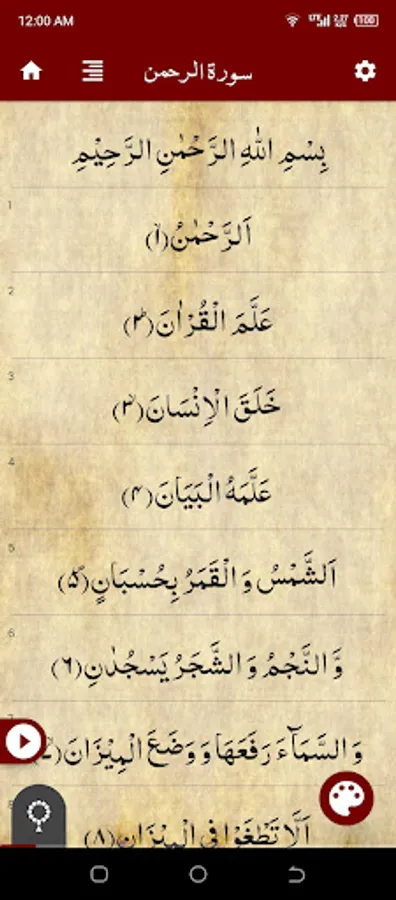 12:00 AM
سورة الرحمن
بِسْمِ اللّٰهِ الرَّحْمٰنِ الرَّحِيْمِ
1
اَلرَّحْمٰنُ(۱)
2
عَلَّمَ الْقُرْاٰنَ(۲)
3
خَلَقَ الْاِنْسَانَ(۳)
4
عَلَّمَهُ الْبَيَانَ(۴)
5
اَلشَّمْسُ وَ الْقَمَرُ بِحُسْبَانٍ(۵)
6
وَّ النَّجْمُ وَ الشَّجَرُ يَسْجُدٰنِ(۶)
وَ السَّمَآءَ رَفَعَهَا وَ وَضَعَ الْمِيْزَانَ
اَلَّا تَطْغَوْا فِی الْمِيْزَانِ(۸)